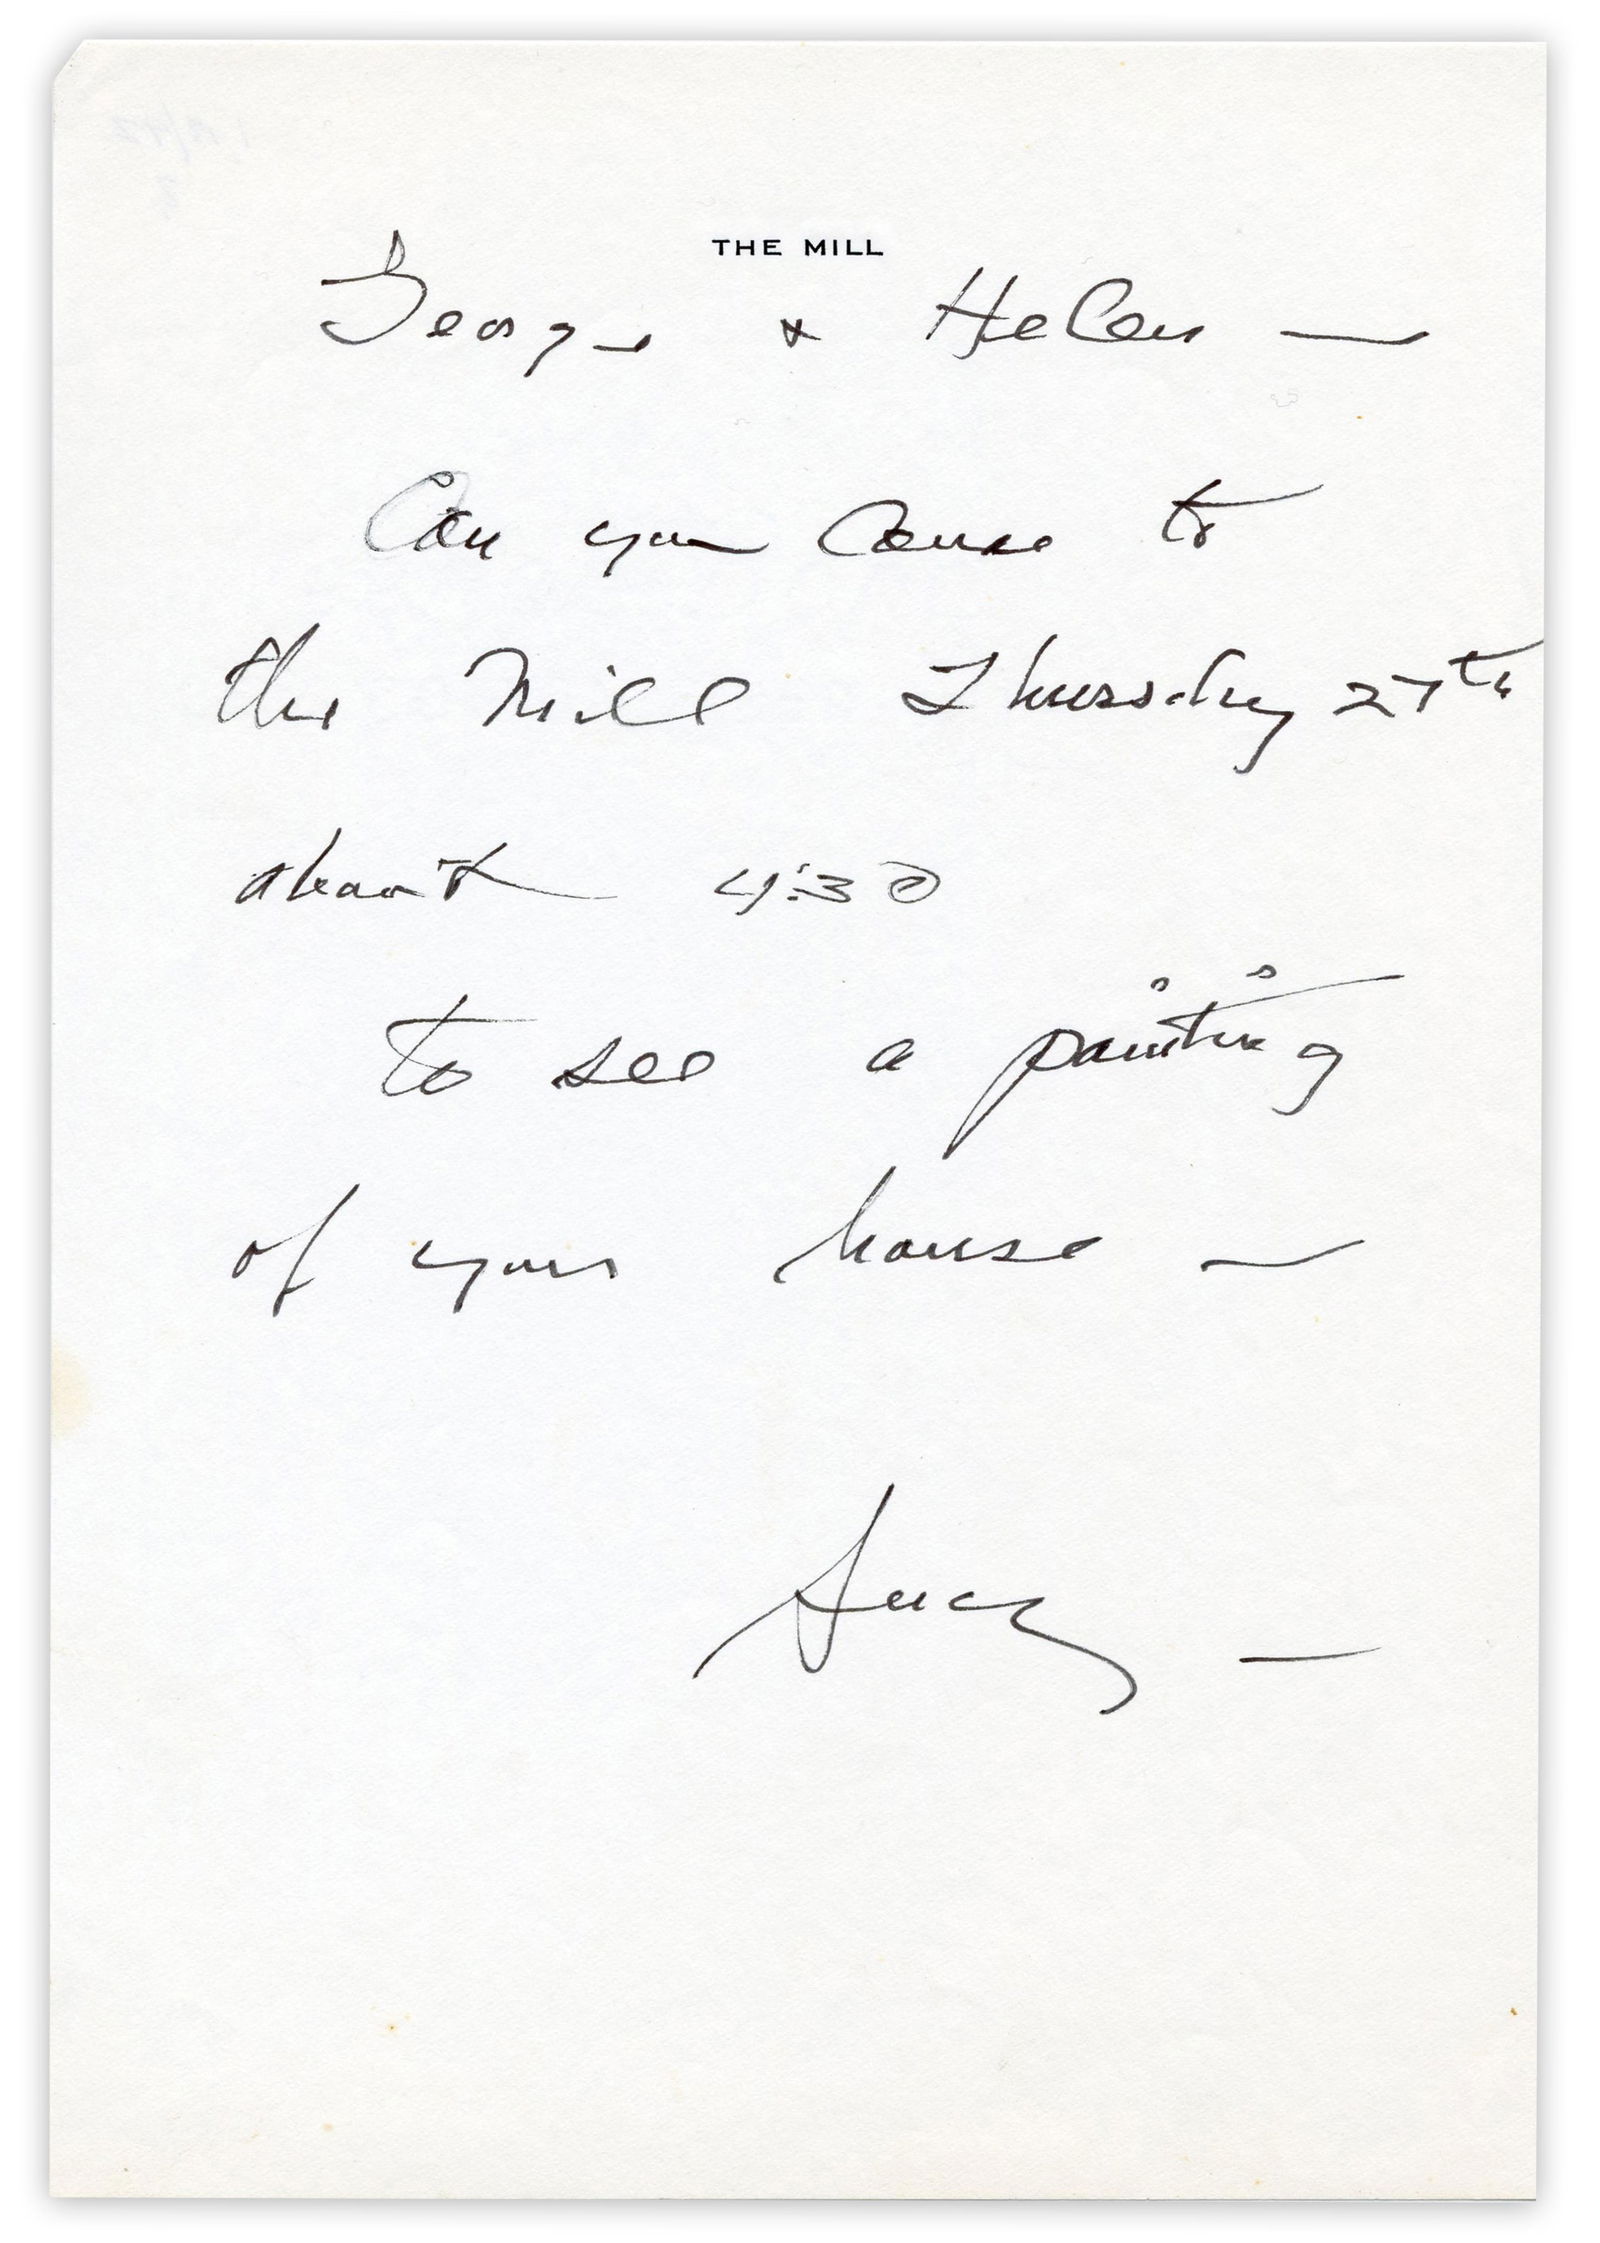 THE MILL
George & Helen —
Can you come to
the Mill Thursday 27th
about 4:30
to see a painting
of your house —